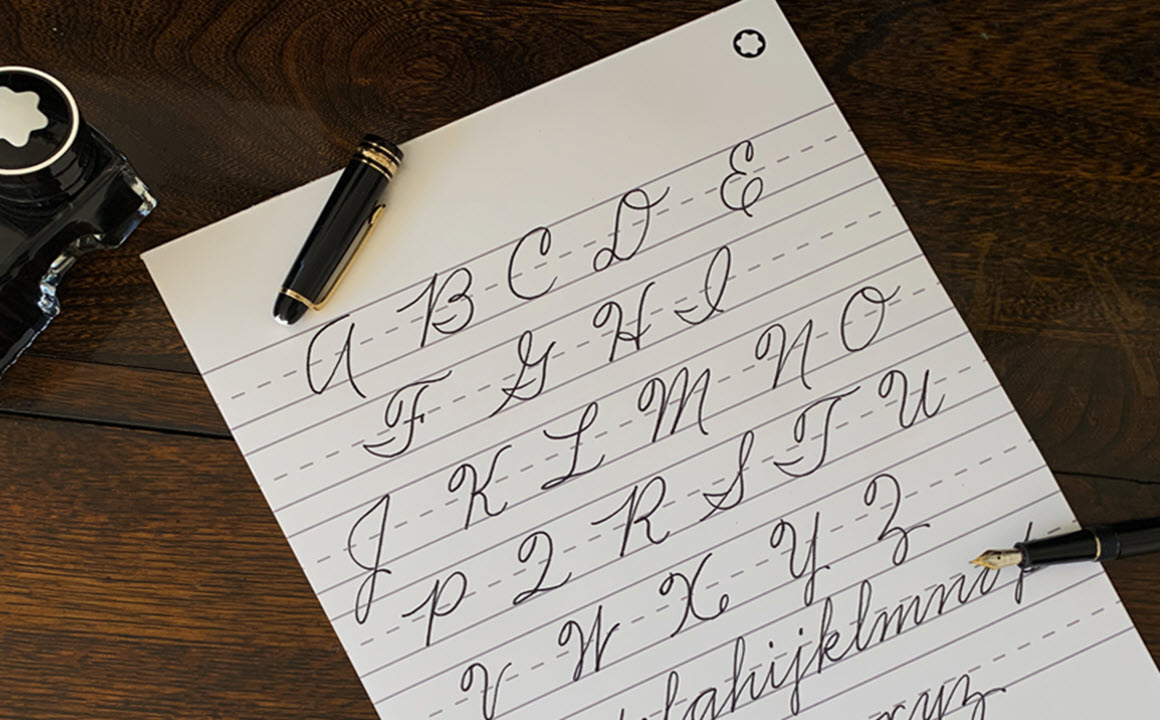 A B C D E
F G H I
J K L M N O
P Q R S T U
V W X Y Z
fghijklmnop
xyz